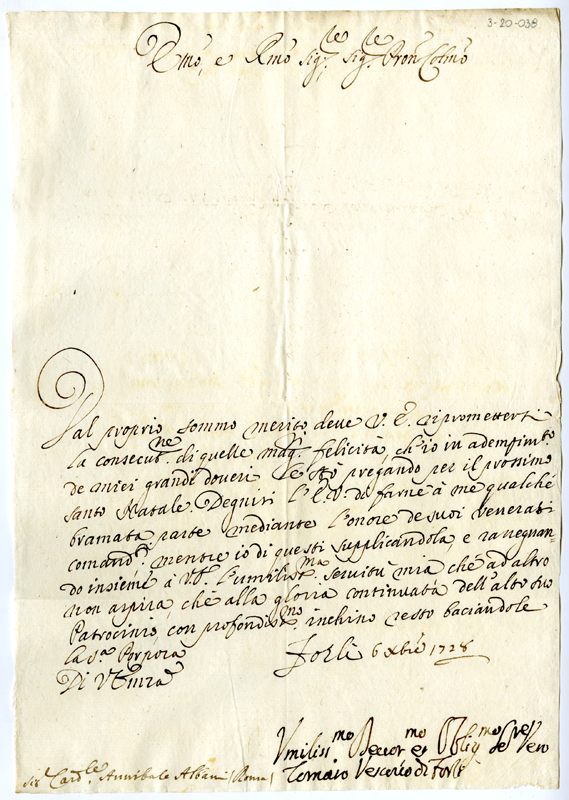 3-20-038
Emo, e Rmo Sigre, Sigre Pron Colmo
Dal proprio sommo merito deve V. E. ripromettersi
la consecuzne di quelle magri felicità, ch'io in adempimto
de miei grandi doveri le stò pregando per il prossimo
Santo Natale. Degnisi l'E. V. di farne à me qualche
bramata parte mediante l'onore de suoi venerati
comandi, mentre io di questi supplicandola, e rassegnan-
do insieme à V. E. l'umilissma servitù mia che ad altro
non aspira, che alla gloria continuata dell'alto suo
Patrocinio, con profondissmo inchino resto baciandole
la Sa Porpora
Di V. Eminza Forlì 6 xbre 1728
Umilissmo Devotmo et Obligmo Sre Vero
Tomaso Vescovo di Forlì
Sigr Cardle Annibale Albani (Roma)